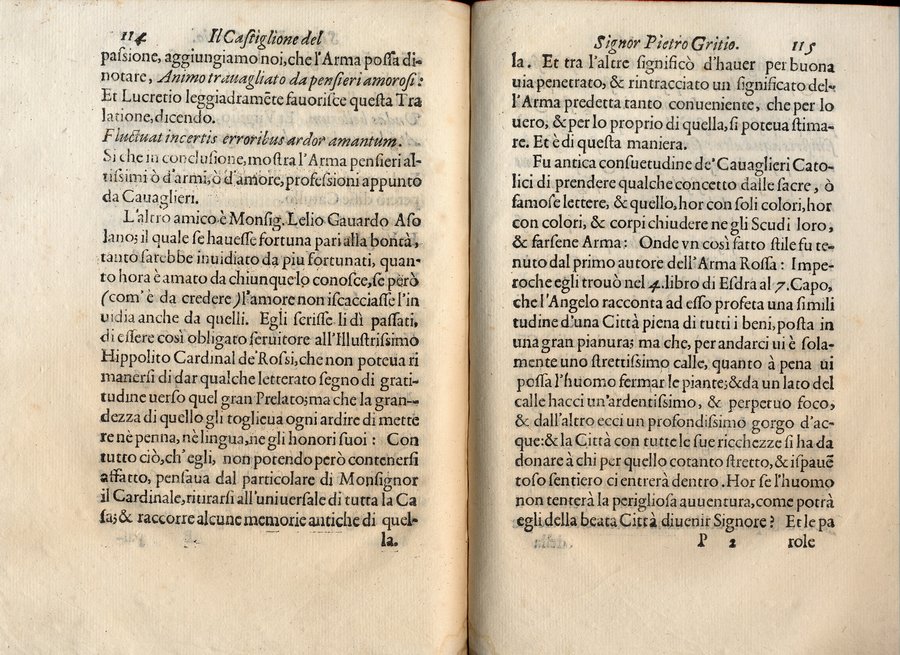 114 Il Castiglione del
passione, aggiungiamo noi, che l'Arma possa di-
notare, Animo trauagliato da pensieri amorosi:
Et Lucretio leggiadramẽte fauorisce questa Tra
latione, dicendo.
Fluctuat incertis erroribus ardor amantum.
Si che in conclusione, mostra l'Arma pensieri al-
tissimi ò d'armi, ò d'amore, professioni appunto
da Cauaglieri.
L'altro amico è Monsig. Lelio Gauardo Aso
lano; il quale se hauesse fortuna pari alla bontà,
tanto sarebbe inuidiato da piu fortunati, quan-
to hora è amato da chiunque lo conosce, se però
(com'è da credere) l'amore non iscacciasse l'in
uidia anche da quelli. Egli scrisse li dì passati,
di essere così obligato seruitore all'Illustrissimo
Hippolito Cardinal de'Rossi, che non poteua ri
manersi di dar qualche letterato segno di grati-
tudine uerso quel gran Prelato; ma che la gran-
dezza di quello gli toglieua ogni ardire di mette
re nè penna, nè lingua, ne gli honori suoi: Con
tutto ciò, ch'egli, non potendo però contenersi
affatto, pensaua dal particolare di Monsignor
il Cardinale, ritirarsi all'uniuersale di tutta la Ca
sa; & raccorre alcune memorie antiche di quel-
la.
Signor Pietro Gritio. 115
la. Et tra l'altre significò d'hauer per buona
uia penetrato, & rintracciato un significato del-
l'Arma predetta tanto conueniente, che per lo
uero, & per lo proprio di quella, si poteua stima-
re. Et è di questa maniera.
Fu antica consuetudine de' Cauaglieri Cato-
lici di prendere qualche concetto dalle sacre, ò
famose lettere, & quello, hor con soli colori, hor
con colori, & corpi chiudere ne gli Scudi loro,
& farsene Arma: Onde vn così fatto stile fu te-
nuto dal primo autore dell'Arma Rossa: Impe-
roche egli trouò nel 4. libro di Esdra al 7. Capo,
che l'Angelo racconta ad esso profeta una simili
tudine d'una Città piena di tutti i beni, posta in
una gran pianura; ma che, per andarci ui è sola-
mente uno strettissimo calle, quanto à pena ui
possa l'huomo fermar le piante; & da un lato del
calle hacci un'ardentissimo, & perpetuo foco,
& dall'altro ecci un profondissimo gorgo d'ac-
que: & la Città con tutte le sue ricchezze si ha da
donare à chi per quello cotanto stretto, & ispauẽ
toso sentiero ci entrerà dentro. Hor se l'huomo
non tenterà la perigliosa auuentura, come potrà
egli della beata Città diuenir Signore? Et le pa
P 2 role